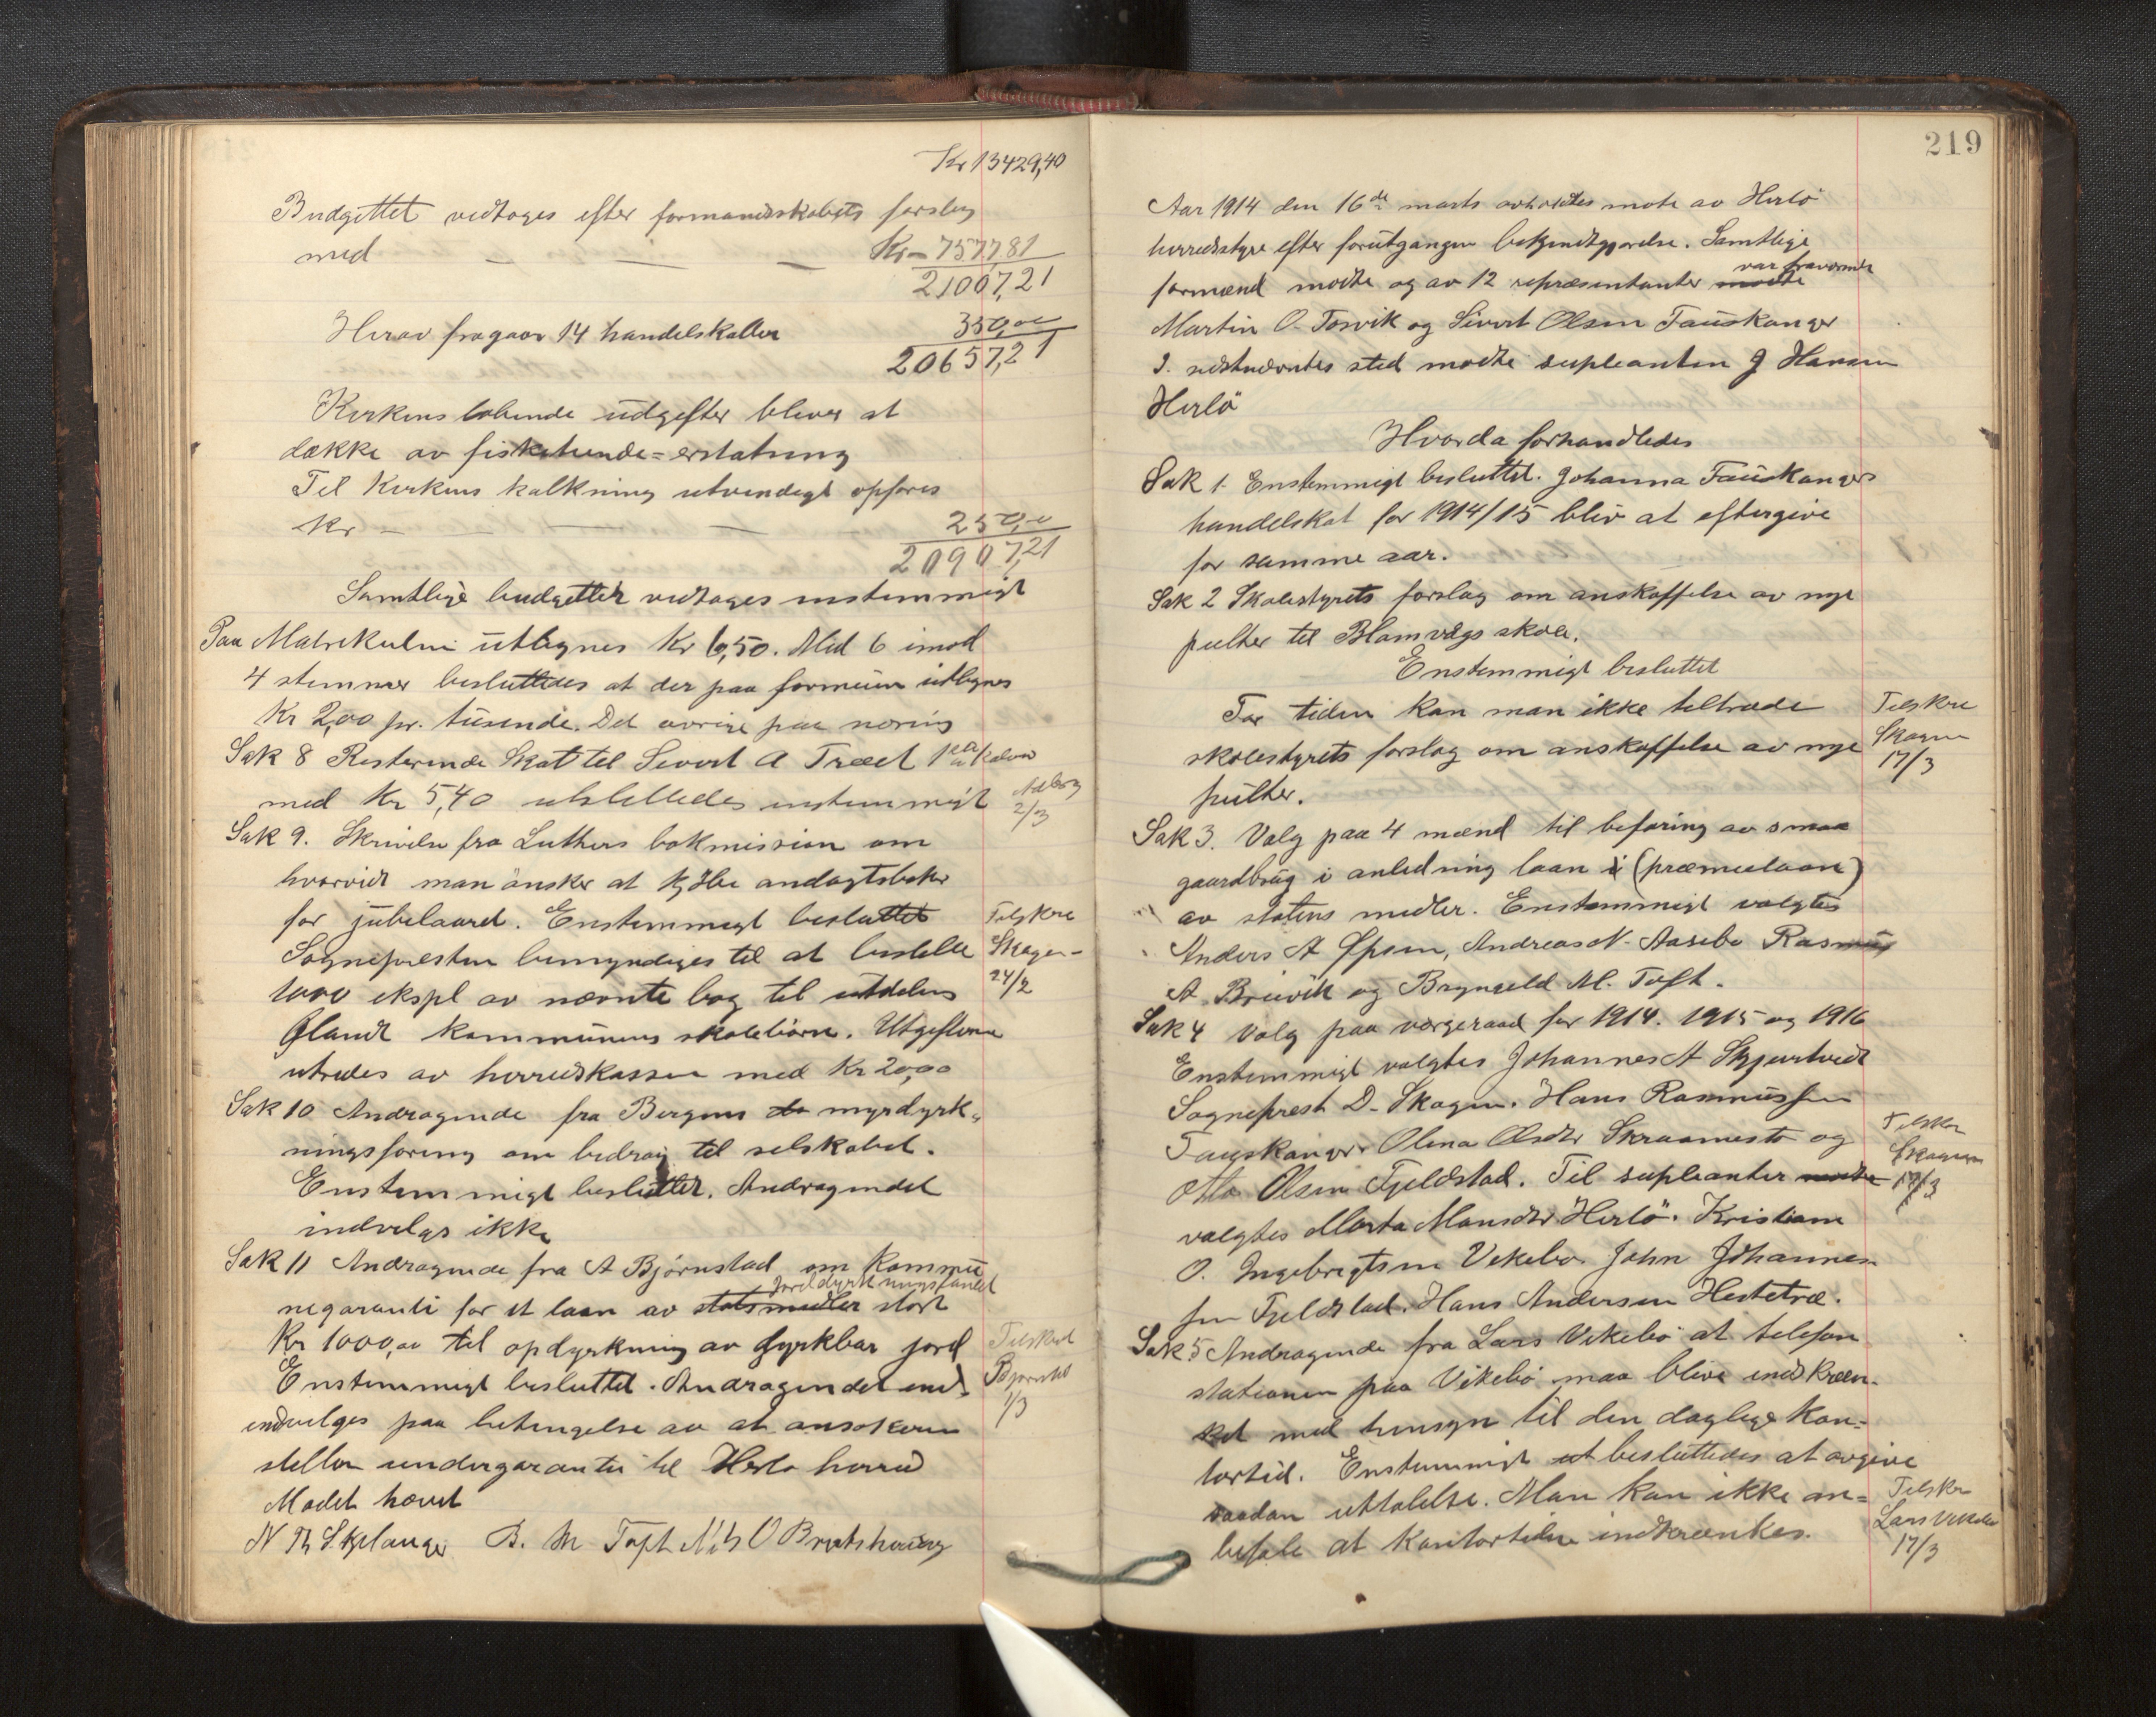 Kr 13429,40
Budgettet vedtoges efter formandskabets forslag
med — — — Kr – 7577,81
21007,21
Herav fragaar 14 handelskatter 350,00
20657,21
Kirkens løbende udgifter bliver at
dække av fisketiende=erstatning
Til Kirkens kalkning utvendigt opføres
Kr – — — 250,00
20907,21
Samtlige budgetter vedtages enstemmigt
Paa Matrikulen utlignes Kr 6,50. Med 6 imod
4 stemmer besluttedes at der paa formuen utlignes
Kr 2,00 pr. tusende. Det øvrige paa næring
Sak 8 Resterende Skat til Severt A Træet
med Kr 5,40 utslettedes enstemmigt
2/3
Sak 9. Skrivelse fra Luthers bokmission om
hvorvidt man ønsker at kjøbe andagtsbøker
for jubelaaret. Enstemmigt besluttet
Sognepresten bemyndiges til at bestille
1000 ekspl av nævnte bog til utdelins
blandt kommunens skolebørn. Utgifterne
utredes av herredskassen med Kr 20,00
Tilskre
Skagen –
24/2
Sak 10 Andragende fra Bergens myrdyrk=
ningsforeng om bedrag til selskabet.
Enstemmigt besluttet. Andragendet
indvilges ikke
Sak 11 Andragende fra A Bjørnstad om Kommu
jorddyrkningsfondet
negaranti for et laan av statsmidler stort
Kr 1000,00 til opdyrkning av dyrkbar jord
Enstemmigt besluttet. Andragendet ind
indvilges paa betingelse av at ansøkeren
stiller undergarantie til Herlø herred
Tilskret
Bjørnstad
1/3
Mødet hævet
N Th Skjelanger B. M Toft Nils O Bratshaug
219
Aar 1914 den 16de marts avholdtes møte av Herlö
herredsstyre efter forutgangen bekjendtgjørelse. Samtlige
var fraværende
formænd mødte og av 12 repræsentanter mødte
Martin O. Torvik og Sivert Olsen Fauskanger
I. sidstnævntes sted mødte supleanten J Hansen
Herlö
Hvorda forhandledes
Sak 1. Enstemmigt besluttet. Johanna Fauskangers
handelskat for 1914/15 bliv at eftergive
for samme aar.
Sak 2 Skolestyrets forslag om anskaffelse av nye
pulter til Blomvågs skole.
Enstemmigt besluttet
For tiden kan man ikke tiltræde
skolestyrets forslag om anskaffelse av nye
pulter.
Tilskre
Skagen
17/3
Sak 3. Valg paa 4 mænd til befaring av smaa
gaardbrug i anledning laan i (præmielaan)
av statens midler. Enstemmigt valgtes
Anders A Øpsen, Andreas N. Aasebø Rasmus
A. Breivik og Bryngeld M. Toft.
Sak 4 Valg paa værgeraad for 1914. 1915 og 1916
Enstemmigt valgtes Johannes A Skjertveit
Sogneprest D. Skagen. Hans Rasmussen
Fauskanger Olina Olsdtr Skraamestø og
Atle Olsen Fjeldstad. Til supleanter mødte
valgtes Marta Monsdtr Herlö. Kristian
O. Ingebrigtsen Vikebø John Johannes
sen Fjeldstad. Hans Andersen Hestetræ.
Tilskr
Skagen
17/3
Sak 5 Andragende fra Lars Vikebø at telefon
stationen paa Vikebø maa blive indskræn-
ket med hensyn til den daglige kon=
tortid. Enstemmigt ut besluttedes at avgive
saadan uttalelse. Man kan ikke an=
befale at kontortiden indkrænkes.
Tilskr
Lars Vikebø
17/3